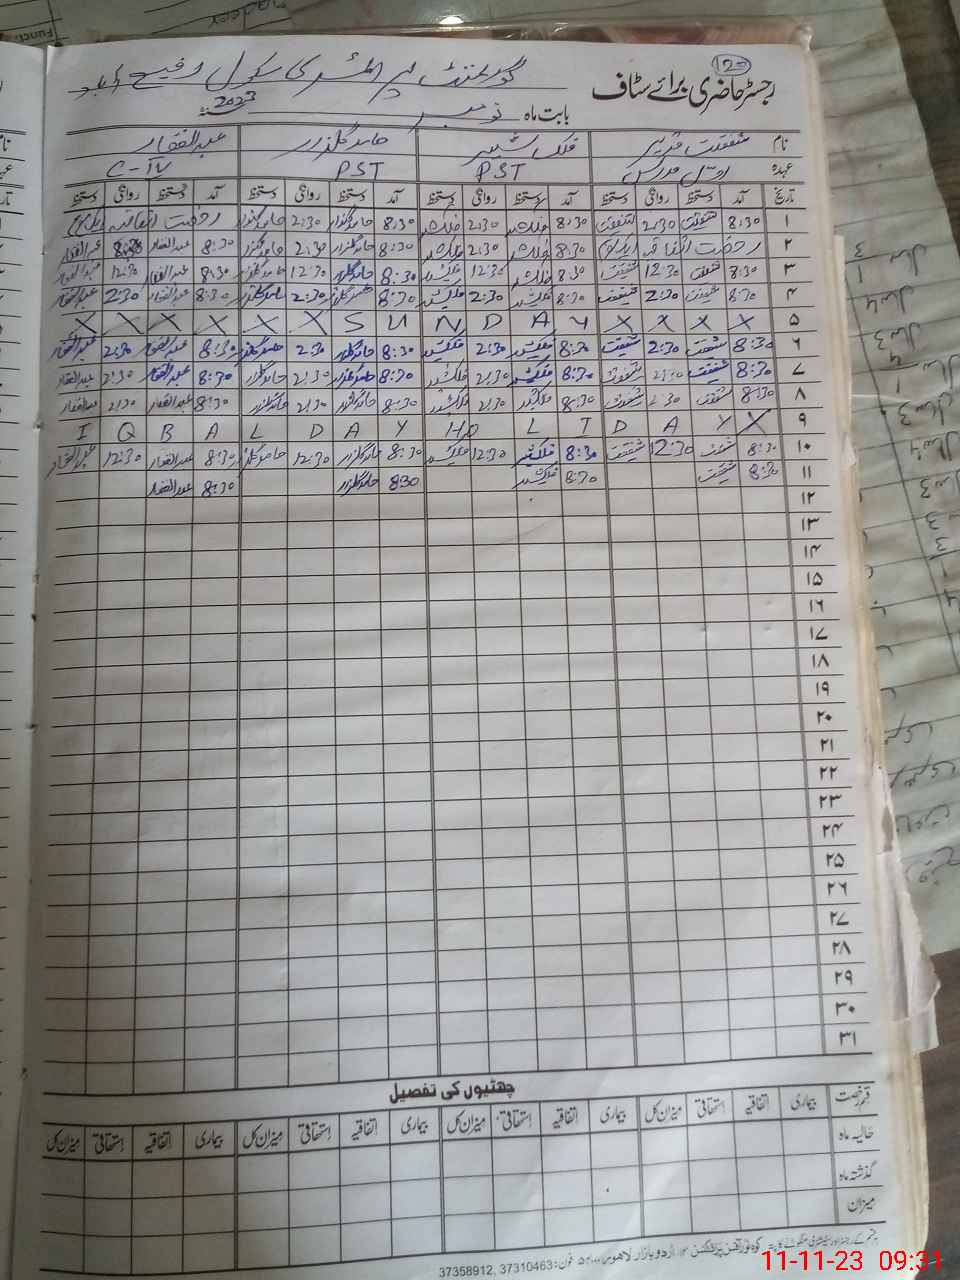 (120)
رجسٹر حاضری برائے سٹاف
گورنمنٹ پرائمری سکول رفیع آباد
بابت ماہ نومبر 2023
نام شفقت فلک شیر حامد گلزار عبدالغفار
عہدہ PST PST C-IV
تاریخ آمد دستخط روانگی دستخط آمد دستخط روانگی دستخط آمد دستخط روانگی دستخط آمد دستخط روانگی دستخط
۱ 8:30 شفقت 2:30 شفقت 8:30 فلک شیر 2:30 فلک شیر 8:30 حامد گلزار 2:30 حامد گلزار رخصت اتفاقیہ
۲ رخصت اتفاقیہ 8:30 فلک شیر 2:30 فلک شیر 8:30 حامد گلزار 2:30 حامد گلزار 8:30 عبدالغفار عبدالغفار
۳ 8:30 شفقت 12:30 شفقت 8:30 فلک شیر 12:30 فلک شیر 8:30 حامد گلزار 12:30 حامد گلزار 8:30 عبدالغفار 12:30 عبدالغفار
۴ 8:30 شفقت 2:30 شفقت 8:30 فلک شیر 2:30 فلک شیر 8:30 حامد گلزار 2:30 حامد گلزار 8:30 عبدالغفار 2:30 عبدالغفار
X X X X X X S U N D A Y X X X X ۵
۶ 8:30 شفقت 2:30 شفقت 8:30 فلک شیر 2:30 فلک شیر 8:30 حامد گلزار 2:30 حامد گلزار 8:30 عبدالغفار 2:30 عبدالغفار
۷ 8:30 شفقت 2:30 شفقت 8:30 فلک شیر 2:30 فلک شیر 8:30 حامد گلزار 2:30 حامد گلزار 8:30 عبدالغفار 2:30 عبدالغفار
۸ 8:30 شفقت 2:30 شفقت 8:30 فلک شیر 2:30 فلک شیر 8:30 حامد گلزار 2:30 حامد گلزار 8:30 عبدالغفار 2:30 عبدالغفار
I Q B A L D A Y HO L I D A Y X ۹
۱۰ 8:30 شفقت 12:30 شفقت 8:30 فلک شیر 12:30 فلک شیر 8:30 حامد گلزار 12:30 حامد گلزار 8:30 عبدالغفار 12:30 عبدالغفار
۱۱ 8:30 شفقت 8:30 فلک شیر 8:30 حامد گلزار 8:30 عبدالغفار
۱۲
۱۳
۱۴
۱۵
۱۶
۱۷
۱۸
۱۹
۲۰
۲۱
۲۲
۲۳
۲۴
۲۵
۲۶
۲۷
۲۸
۲۹
۳۰
۳۱
چھٹیوں کی تفصیل
قسم رخصت بیماری اتفاقیہ استحقاقی میزان کل بیماری اتفاقیہ استحقاقی میزان کل بیماری اتفاقیہ استحقاقی میزان کل بیماری اتفاقیہ استحقاقی میزان کل
حالیہ ماہ
گذشتہ ماہ
میزان
اردو بازار لاہور فون: 37310463, 37358912
11-11-23 09:31